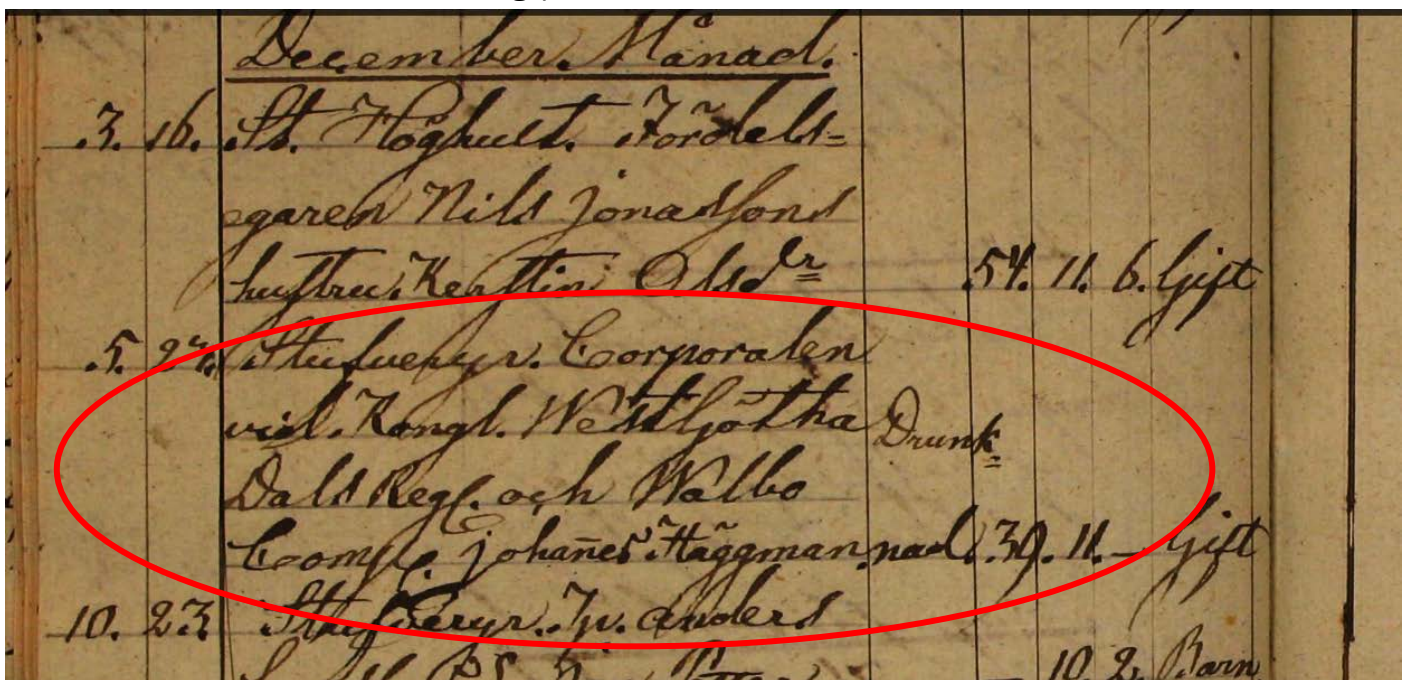 December Månad.
3. 16. St. Höghult. Fördels-
egaren Nils Jonassons
hustru Kerstin Olsdr 54. 11. 6. Gift
5. 27. Stufveryr. Corporalen
vid. Kongl. Westgötha Drunk
Dals Reg. och Walbo
Comp. Johanes Häggman nad. 39. 11. — Gift
10. 23. Stufveryr. Anders
10. 2. Barn